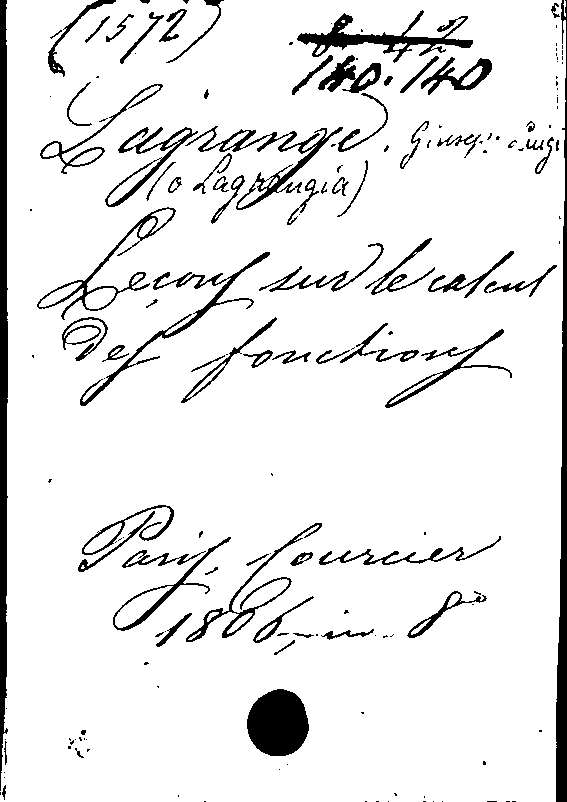 (1572)
140.140
Lagrange, Giusep. Luigi
(o Lagrangia)
Leçons sur le calcul
des fonctions
Paris, Courcier
1806, in 8°